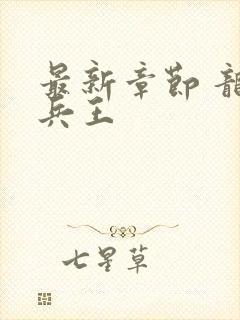 最新章節 龍
兵王
七星草